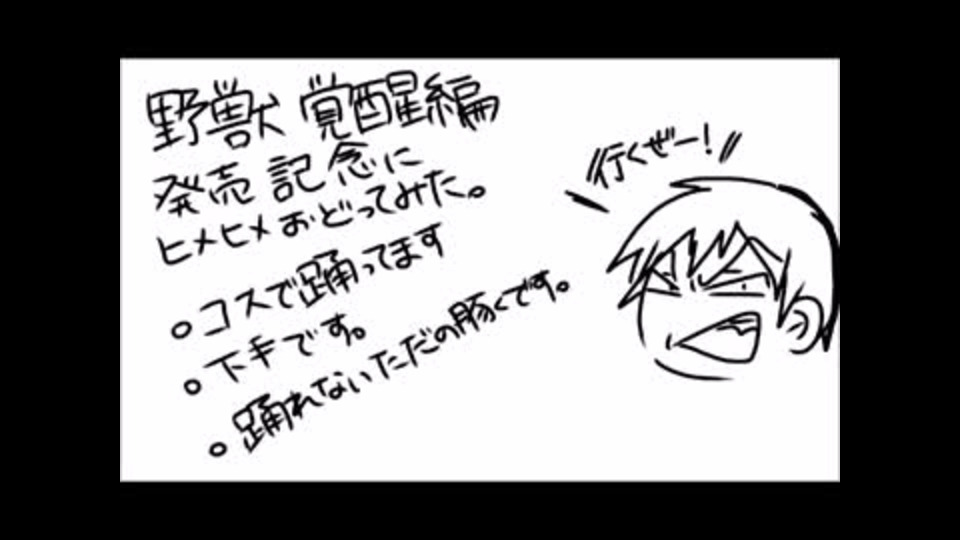 野獣 覚醒編
発売記念に
ヒメヒメおどってみた。
。コスで踊ってます
。下手です。
。踊れないただの豚くです。
行くぜー!